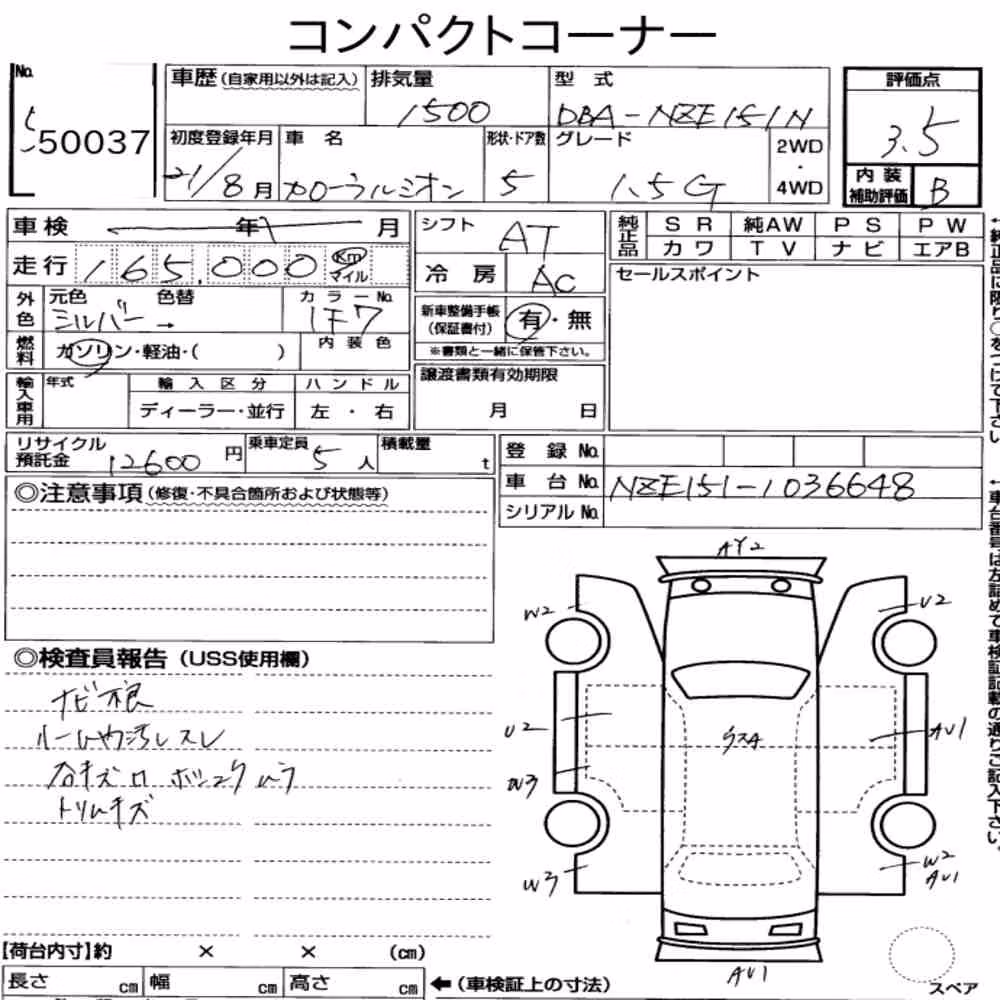 コンパクトコーナー
No. 50037
車歴 (自家用以外は記入) 排気量 1500 型式 DBA-NZE151N
初度登録年月 21/8月 車名 カローラルミオン 形状・ドア数 5 グレード 1.5G 2WD・4WD
評価点 3.5
内装補助評価 B
車検 年 月
走行 165,000 Km マイル
外色 元色 シルバー 色替 カラーNo. 1F7
燃料 ガソリン・軽油・( ) 内装色
輸入車用 年式 輸入区分 ディーラー・並行 ハンドル 左・右
シフト AT
冷房 AC
新車整備手帳(保証書付) 有・無
※書類と一緒に保管下さい。
譲渡書類有効期限
月 日
純正品 SR 純AW PS PW
カワ TV ナビ エアB
セールスポイント
リサイクル預託金 12600 円 乗車定員 5人 積載量 t
登録No.
車台No. NZE151-1036648
シリアルNo.
◎注意事項(修復・不具合箇所および状態等)
◎検査員報告(USS使用欄)
ナビ不良
トリムキズ
AY2
W2
U2
U2
AU1
W3
W3
W2
AU1
AU1
スペア
【荷台内寸】約 × × (cm)
長さ cm 幅 cm 高さ cm ←(車検証上の寸法)
←純正品に限り○をつけて下さい
←車台番号は左詰めで車検証記載の通りご記入下さい。